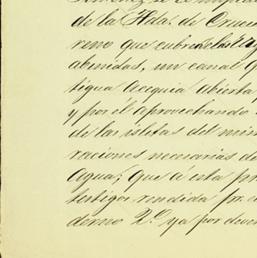 de la Hda. de Cruce
reno que cubre las
abenidas, un canal q
tigua Acequia abierta
y por el aprovechando
de las isletas del mim
raciones necesarias d
Agua; que á esta pr
testigos rendida pr.
derno 2.º ya por